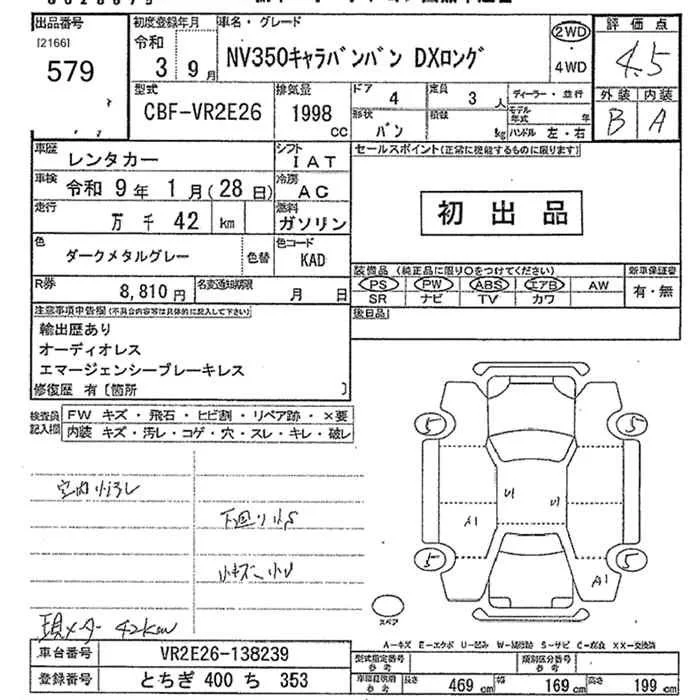 出品番号
[2166]
579
初度登録年月
令和
3年 9月
車名・グレード
NV350キャラバンバン DXロング
2WD
4WD
評価点
4.5
外装 内装
B A
型式
CBF-VR2E26
排気量
1998
CC
ドア
4
定員
3人
形状
バン
積載
kg
ディーラー・並行
モデル年式 年
ハンドル 左・右
車歴
レンタカー
シフト
IAT
車検
令和 9年 1月(28日)
冷房
AC
走行
万 千 42 km
燃料
ガソリン
色
ダークメタルグレー
色替
色コード
KAD
R券
8,810円
名変通知期限
月 日
セールスポイント(正常に機能するものに限ります)
初出品
装備品 (純正品に限り○をつけてください)
新車保証書
PS PW ABS エアB AW
有・無
SR ナビ TV カワ
後日品
注意事項申告欄(不具合内容等は具体的に記入して下さい)
輸出歴あり
オーディオレス
エマージェンシーブレーキレス
修復歴 有〔箇所 〕
検査員記入欄
FW キズ・飛石・ヒビ割・リペア跡・×要
内装 キズ・汚レ・コゲ・穴・スレ・キレ・破レ
下廻り小S
現メーター 42km
5 5
A1
5 5
A1
スペア
A-キズ E-エクボ U-凹み W-補修跡 S-サビ C-腐食 XX-交換済
車台番号
VR2E26-138239
登録番号
とちぎ 400 ち 353
型式指定番号
参考
類別区分番号
参考
車両諸元明
参考
長さ 469 cm
幅 169 cm
高さ 199 cm